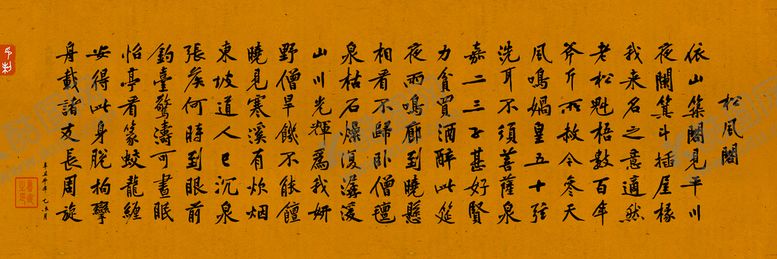 松風閣
依山築閣見平川
夜闌箕斗插屋椽
我來名之意適然
老松魁梧數百年
斧斤所赦今參天
風鳴媧皇五十弦
洗耳不須菩薩泉
嘉二三子甚好賢
力貧買酒醉此筵
夜雨鳴廊到曉懸
相看不歸臥僧氈
泉枯石燥復潺湲
山川光輝爲我妍
野僧旱饑不能饘
曉見寒溪有炊烟
東坡道人已沉泉
張侯何時到眼前
釣臺驚濤可晝眠
怡亭看篆蛟龍纏
安得此身脫拘攣
舟載諸友長周旋